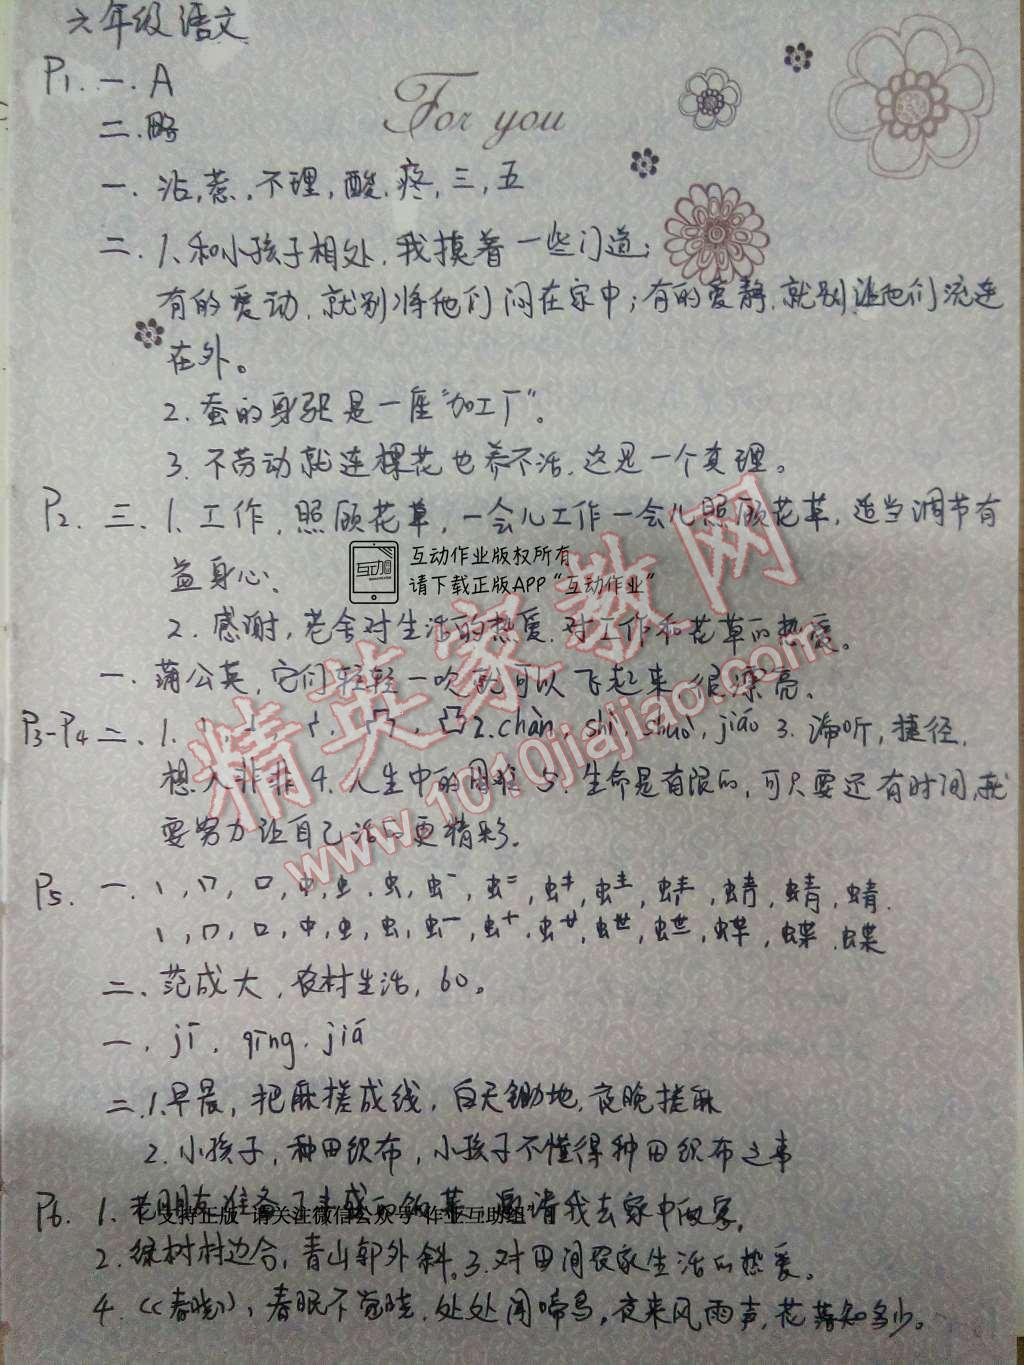 六年级语文
P1. 一. A
For you
二. 略
一. 沾, 惹, 不理, 酸, 疼, 三, 五
二. 1. 和小孩子相处, 我摸着一些门道:
有的爱动, 就别将他们闷在家中; 有的爱静, 就别让他们流连
在外。
2. 蚕的身躯是一座“加工厂”。
3. 不劳动就连棵花也养不活, 这是一个真理。
P2. 三. 1. 工作, 照顾花草, 一会儿工作一会儿照顾花草, 适当调节有
益身心;
互动作业版权所有
请下载正版APP“互动作业”
2. 感谢, 老舍对生活的热爱, 对工作和花草的热爱。
一. 蒲公英, 它们轻轻一吹就可以飞起来 很漂亮.
P3-P4 二. 1. 2. chàn, shì, shuò, jiáo 3. 谛听, 捷径,
想入非非 4. 人生中的困难 5. 生命是有限的, 可只要还有时间, 就
要努力让自己活的更精彩.
精英家教网
www.1010jiajiao.com
P5. 一. 丨, 冂, 口, 中, 虫, 虫, 蜻, 蜻, 蜻.
丨, 冂, 口, 中, 虫, 虫, 蝶, 蝶
二. 范成大, 农村生活, 60。
一. jī, qīng, jiá
二. 1. 早晨, 把麻搓成线, 白天锄地, 夜晚搓麻
2. 小孩子, 种田织布, 小孩子不懂得种田织布之事
P6. 1. 老朋友准备了丰盛的饭菜, 邀请我去家中做客.
支持正版 请关注微信公众号“作业互助组”
2. 绿树村边合, 青山郭外斜。3. 对田间农家生活的热爱。
4. 《春晓》, 春眠不觉晓, 处处闻啼鸟。夜来风雨声, 花落知多少。